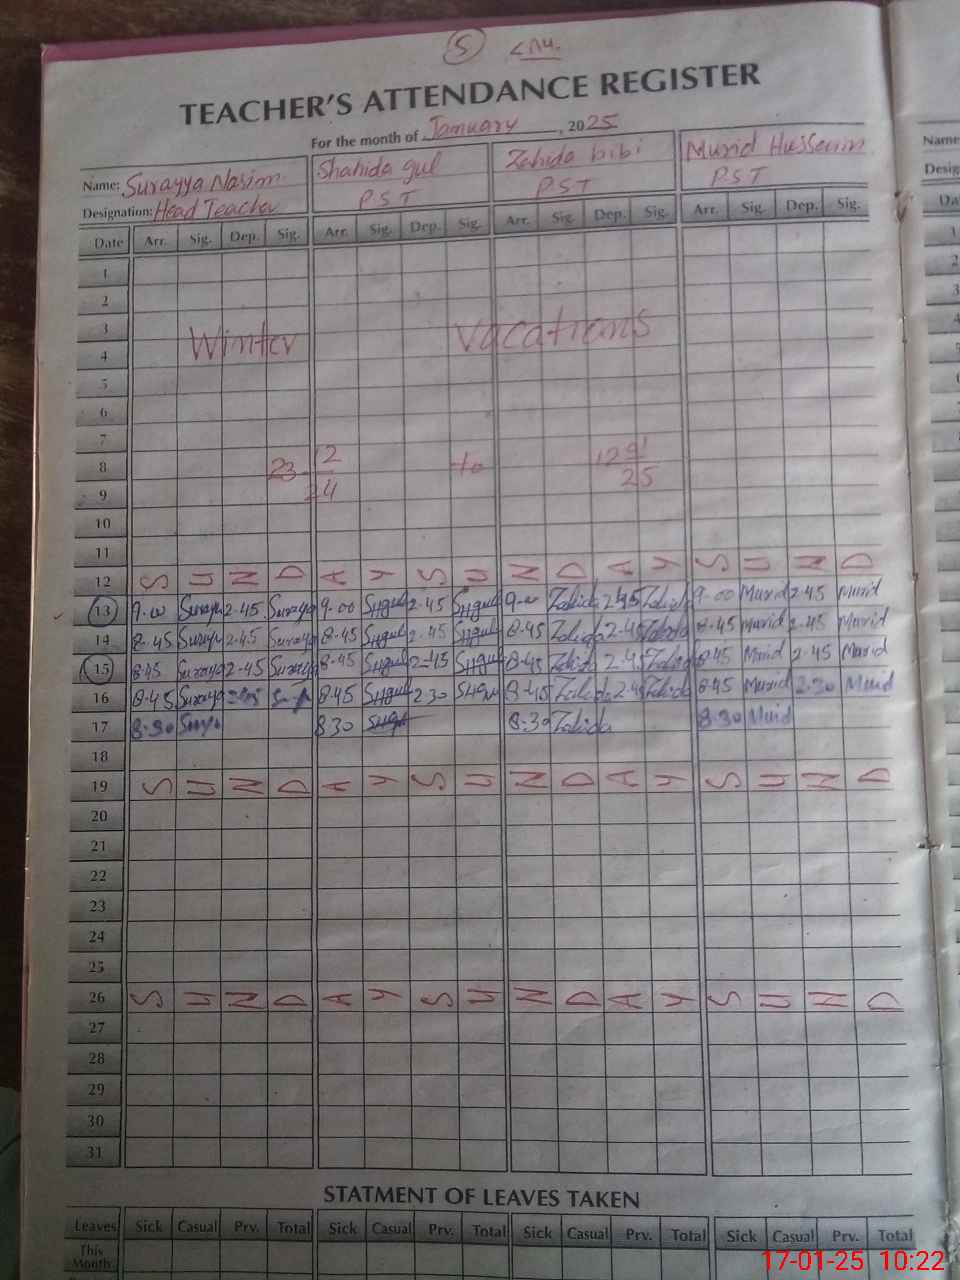 5
TEACHER'S ATTENDANCE REGISTER
For the month of January, 2025
Name: Surayya Nasim Shahida gul Zahida bibi Murid Hussain
Designation: Head Teacher P.S.T P.S.T P.S.T
Date Arr. Sig. Dep. Sig. Arr. Sig. Dep. Sig. Arr. Sig. Dep. Sig. Arr. Sig. Dep. Sig.
1
2
3 Winter vacations
4
5
6
7
8 23 12 to
9 24 25
10
11
12 S U N D A Y S U N D A Y S U N D
13 9.00 Suraya 2.45 Suraya 9.00 SHgul 2.45 SHgul 9.00 Zahida 2.45 Zahida 9.00 Murid 2.45 Murid
14 8.45 Suraya 2.45 Suraya 8.45 SHgul 2.45 SHgul 8.45 Zahida 2.45 Zahida 8.45 Murid 2.45 Murid
15 8.45 Suraya 2.45 Suraya 8.45 SHgul 2.45 SHgul 8.45 Zahida 2.45 Zahida 8.45 Murid 2.45 Murid
16 8.45 Suraya 8.45 SHgul 2.30 SHgul 8.45 Zahida 2.45 Zahida 8.45 Murid 2.30 Murid
17 8.30 8.30 8.30 Zahida 8.30 Murid
18
19 S U N D A Y S U N D A Y S U N D
20
21
22
23
24
25
26 S U N D A Y S U N D A Y S U N D
27
28
29
30
31
STATMENT OF LEAVES TAKEN
Leaves Sick Casual Prv. Total Sick Casual Prv. Total Sick Casual Prv. Total Sick Casual Prv. Total
This
Month
17-01-25 10:22
Name
Desig
Da
1
2
3